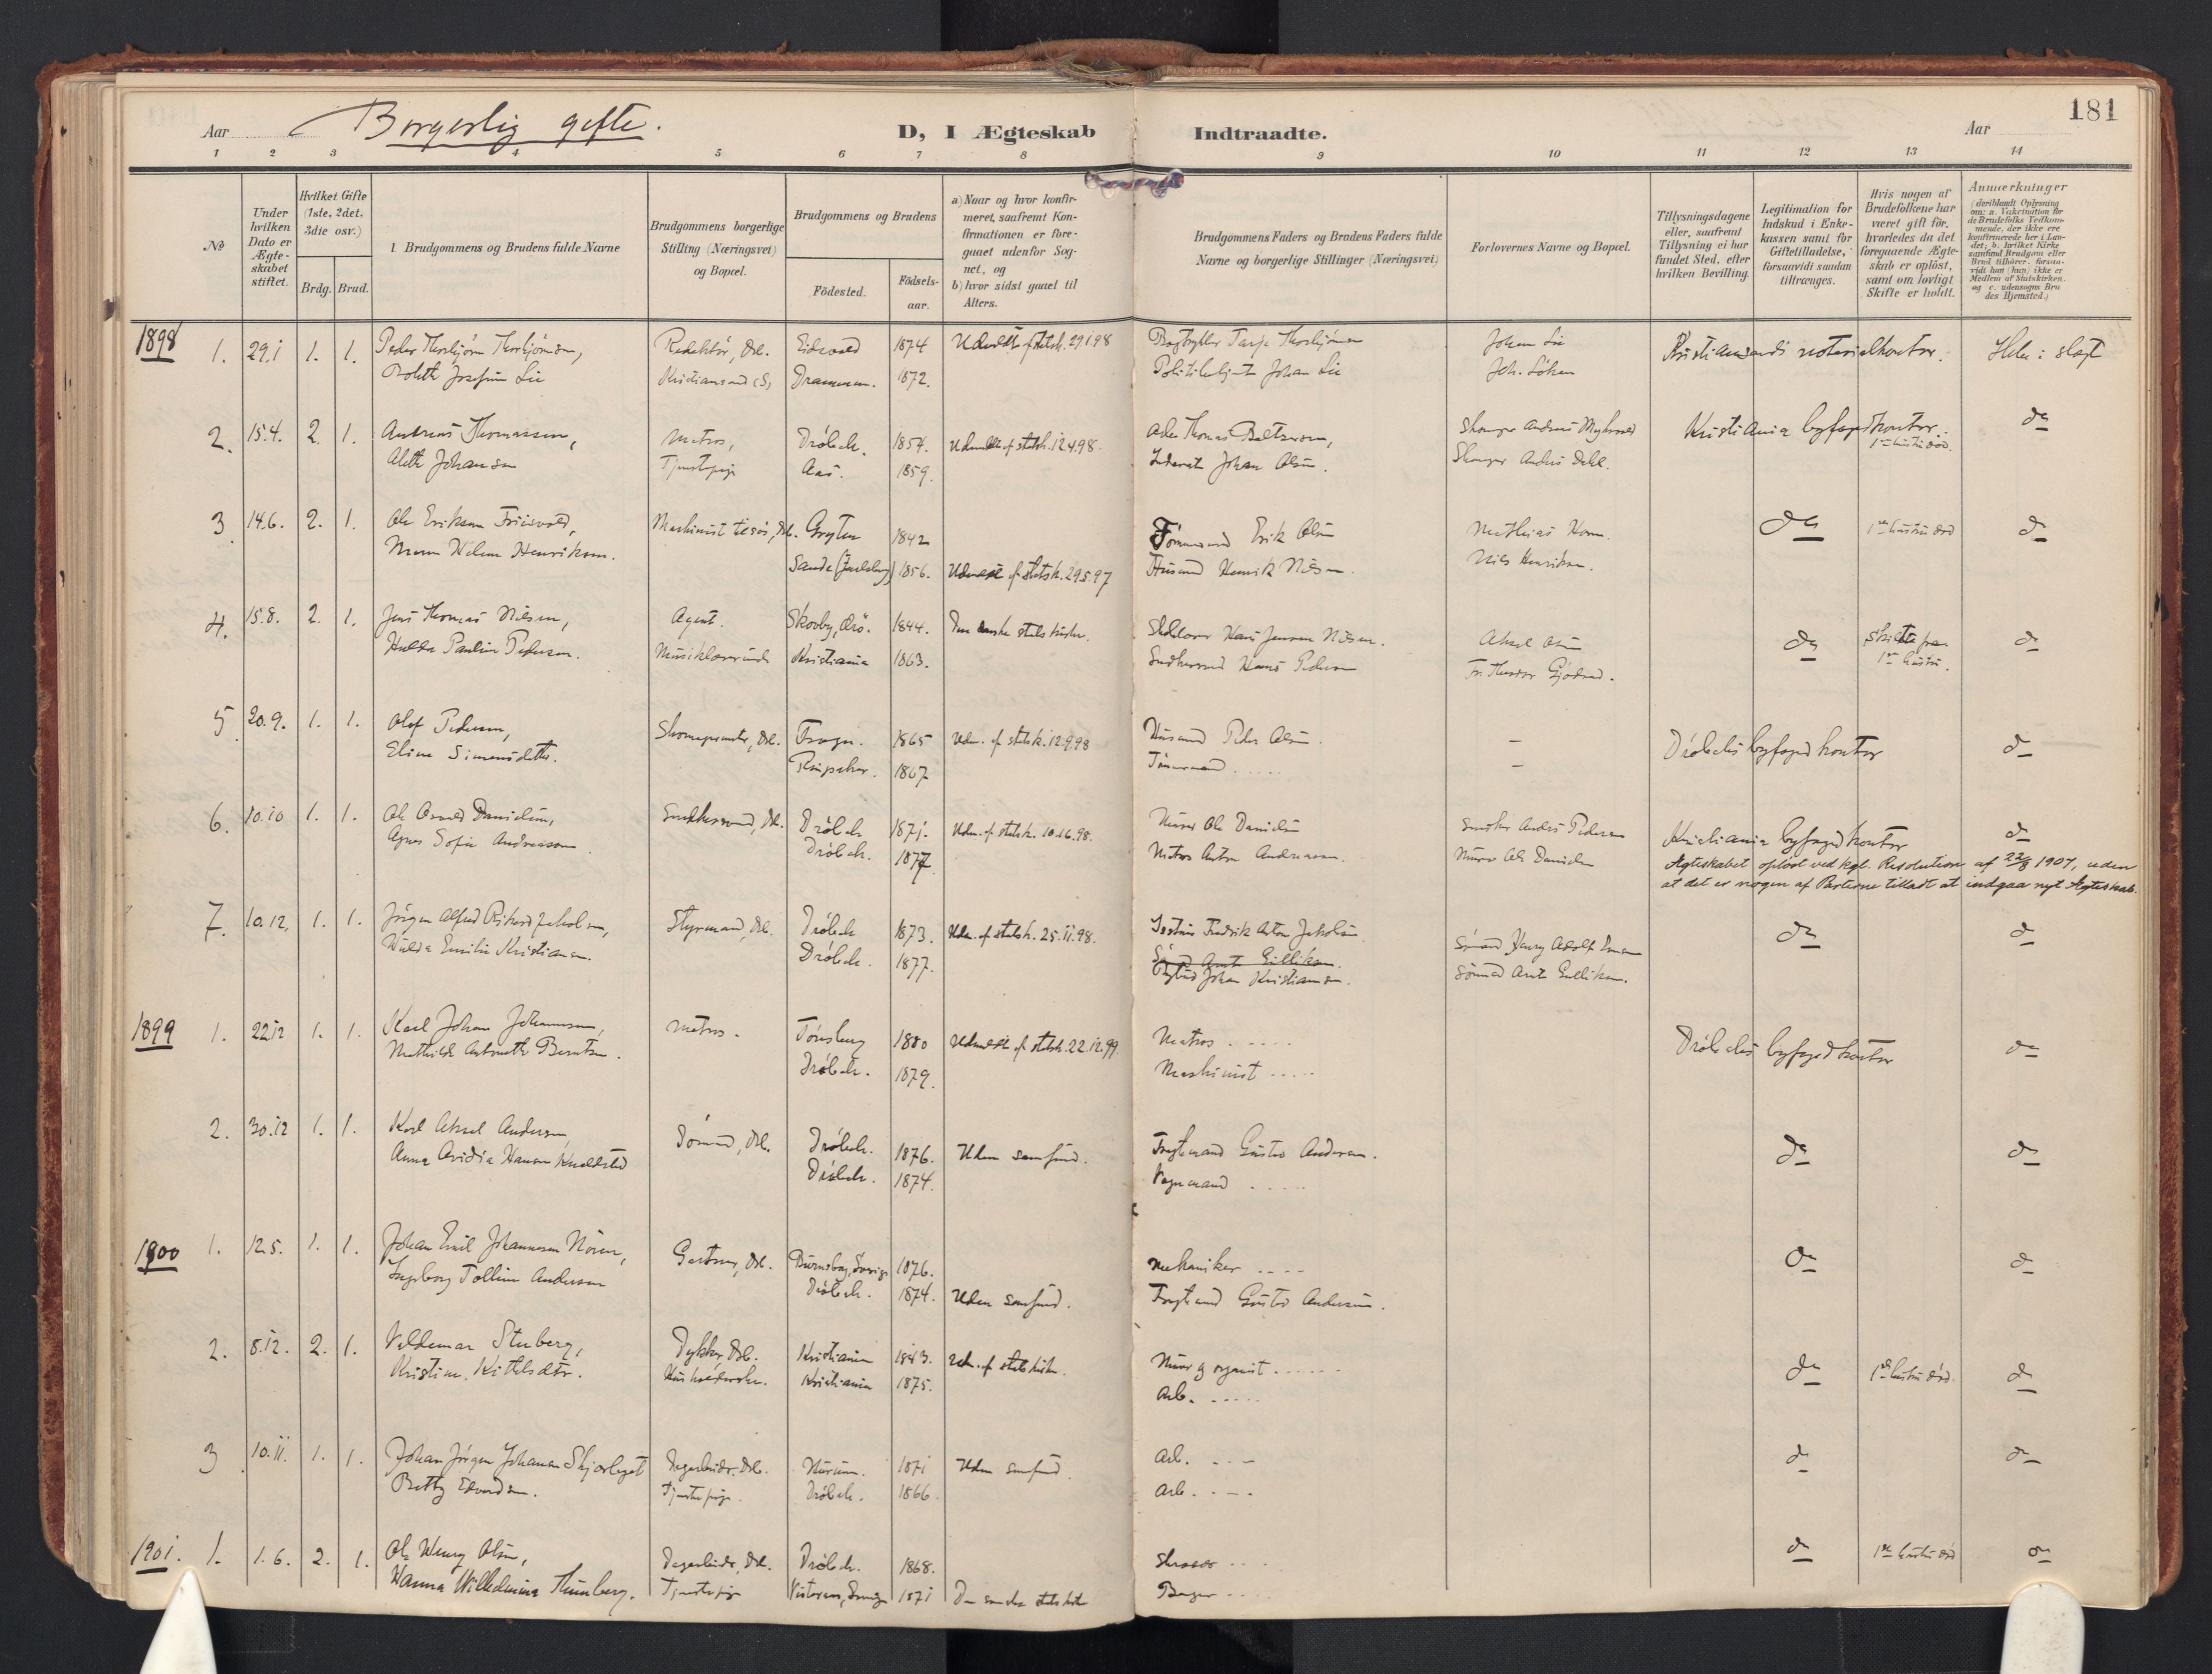 181
Aar
Borgerlig gifte.
D, I Ægteskab
Indtraadte.
Aar
1 2 3 4 5 6 7 8 9 10 11 12 13 14
№
Under hvilken Dato er Ægteskabet stiftet.
Hvilket Gifte (1ste, 2det, 3die osv.)
Brdg. Brud.
Brudgommens og Brudens fulde Navne
Brudgommens borgerlige Stilling (Næringsvei) og Bopæl.
Brudgommens og Brudens
Födested.
Födselsaar.
a) Naar og hvor konfirmeret, saafremt Konfirmationen er foregaaet udenfor Sognet, og
b) hvor sidst gaaet til Alters.
Brudgommens Faders og Brudens Faders fulde Navne og borgerlige Stillinger (Næringsvei)
Forlovernes Navne og Bopæl.
Tillysningsdagene eller, saafremt Tillysning ei har fundet Sted, efter hvilken Bevilling.
Legitimation for Indskud i Enkekassen samt for Giftetilladelse, forsaavidt saadan tiltrænges.
Hvis nogen af Brudefolkene har været gift før, hvorledes da det foregaaende Ægteskab er opløst, samt om lovligt Skifte er holdt.
Anmerkninger (deriblandt Oplysning om: a. Vakcination for de Brudefolks Vedkommende, der ikke ere konfirmerede her i Landet; b. hvilket Kirkesamfund Brudgom eller Brud tilhører, forsaavidt han (hun) ikke er Medlem af Statskirken, og c. udensogns Brudes Hjemsted.)
1898 1. 29.1 1. 1. Peder Thorbjörn Thorbjörnsen, Redaktör, Dbl. Eidsvold 1874 Udmeldt af statsk. 29.1.98 Bogtrykker Tarje Thorbjörnsen Johan Lie Kristiansands notarialkontor.
Bolette Josefine Lie Kristiansand (S) Drammen. 1872. Johan Lie
2. 15.4. 2. 1. Andreas Thomassen, Matros, Dröbak. 1854. Udmeldt af statsk. 12.4.98. Skomager Andreas Kristiania byfogdkontor. 1ste hustru död. do
Alette Johansen Tjenestepige Aas. 1859. Johan Olsen. Skomager Anders Dahl.
3. 14.6. 2. 1. Ole Eriksen Maskinist Gryten 1842 Erik Olsen Mathias do 1ste hustru död do
Henriksen. Sande (Jarlsberg) 1856. Udmeldt af statsk. 29.5.97 Husmand Henrik Nilsen. Nils Henriksen.
4. 15.8. 2. 1. Jens Thomas Nilsen, Agent. Skovby, Ærö. 1844. Den danske statskirke. Hans Jensen Nilsen. Aksel Olsen do Skilt fra 1ste hustru. do
Hulda Pauline Pedersen. Musiklærerinde Kristiania 1863. Snedkersvend Hans Pedersen
5. 20.9. 1. 1. Olof Pedersen, Skomagermester, Dbl. Frogn. 1865 Udm. af statsk. 12.9.98 Husmand Peder Olsen. – Dröbaks byfogdkontor do
Eline Simensdatter. 1867 Tömmermand ..... –
6. 10.10 1. 1. Ole Danielsen, Snedkersvend, Dbl. Dröbak 1871. Udm. af statsk. 10.10.98. Murer Ole Danielsen Snedker Anders Pedersen Kristiania byfogdkontor do
Agnes Sofie Andreassen. Dröbak. 1877. Matros Anton Andreassen. Murer Ole Danielsen
Ægteskabet oplöst ved kgl. Resolution af 22/8 1907, uden
at det er nogen af Parterne tilladt at indgaa nyt Ægteskab.
7. 10.12. 1. 1. Jörgen Alfred Rikard Jakobsen, Styrmand, Dbl. Dröbak 1873. Udm. af statsk. 25.11.98. Fredrik Anton Jakobsen Sömand Henry Adolf do do
Hulda Emilie Kristiansen. Dröbak. 1877. Johan Kristiansen. Sömand Arnt Gulliksen.
1899 1. 22.12 1. 1. Karl Johan Johannessen, Matros. Tönsberg 1880 Udmeldt af statsk. 22.12.99 Matros ..... Dröbaks byfogdkontor do
Mathilde Antonette Berntsen. Dröbak. 1879. Maskinist .....
2. 30.12 1. 1. Karl Aksel Andersen, Sömand, Dbl. Dröbak. 1876. Uden samfund. Gustav Andersen. do do
Anna Ovidia Hansen Dröbak. 1874. Vognmand .....
1900 1. 12.5. 1. 1. Johan Emil Johannesen Gartner, Dbl. Sverige 1876. Mekaniker .... do do
Ingeborg Andersen Dröbak. 1874. Uden samfund. Gustav Andersen.
2. 8.12. 2. 1. Valdemar Stenberg, Dykker Dbl. Kristiania 1843. Udm. af statskirken. Murer og organist ...... do 1ste hustru död. do
Kristine Kittilsdtr. Husholderske. Kristiania 1875. Arb. .....
3. 10.11. 1. 1. Johan Jörgen Johansen Dagarbeider, Dbl. Hurum. 1871 Uden samfund. Arb. ... do do
Betty Edvardsen. Tjenestepige. Dröbak. 1866. Arb. ....
1901. 1. 1.6. 2. 1. Ole Olsen, Dagarbeider, Dbl. Dröbak. 1868. do 1ste hustru död do
Hanna Wilhelmina Thunberg. Tjenestepige Sverige 1871 Den svenske statskirke Bager ....